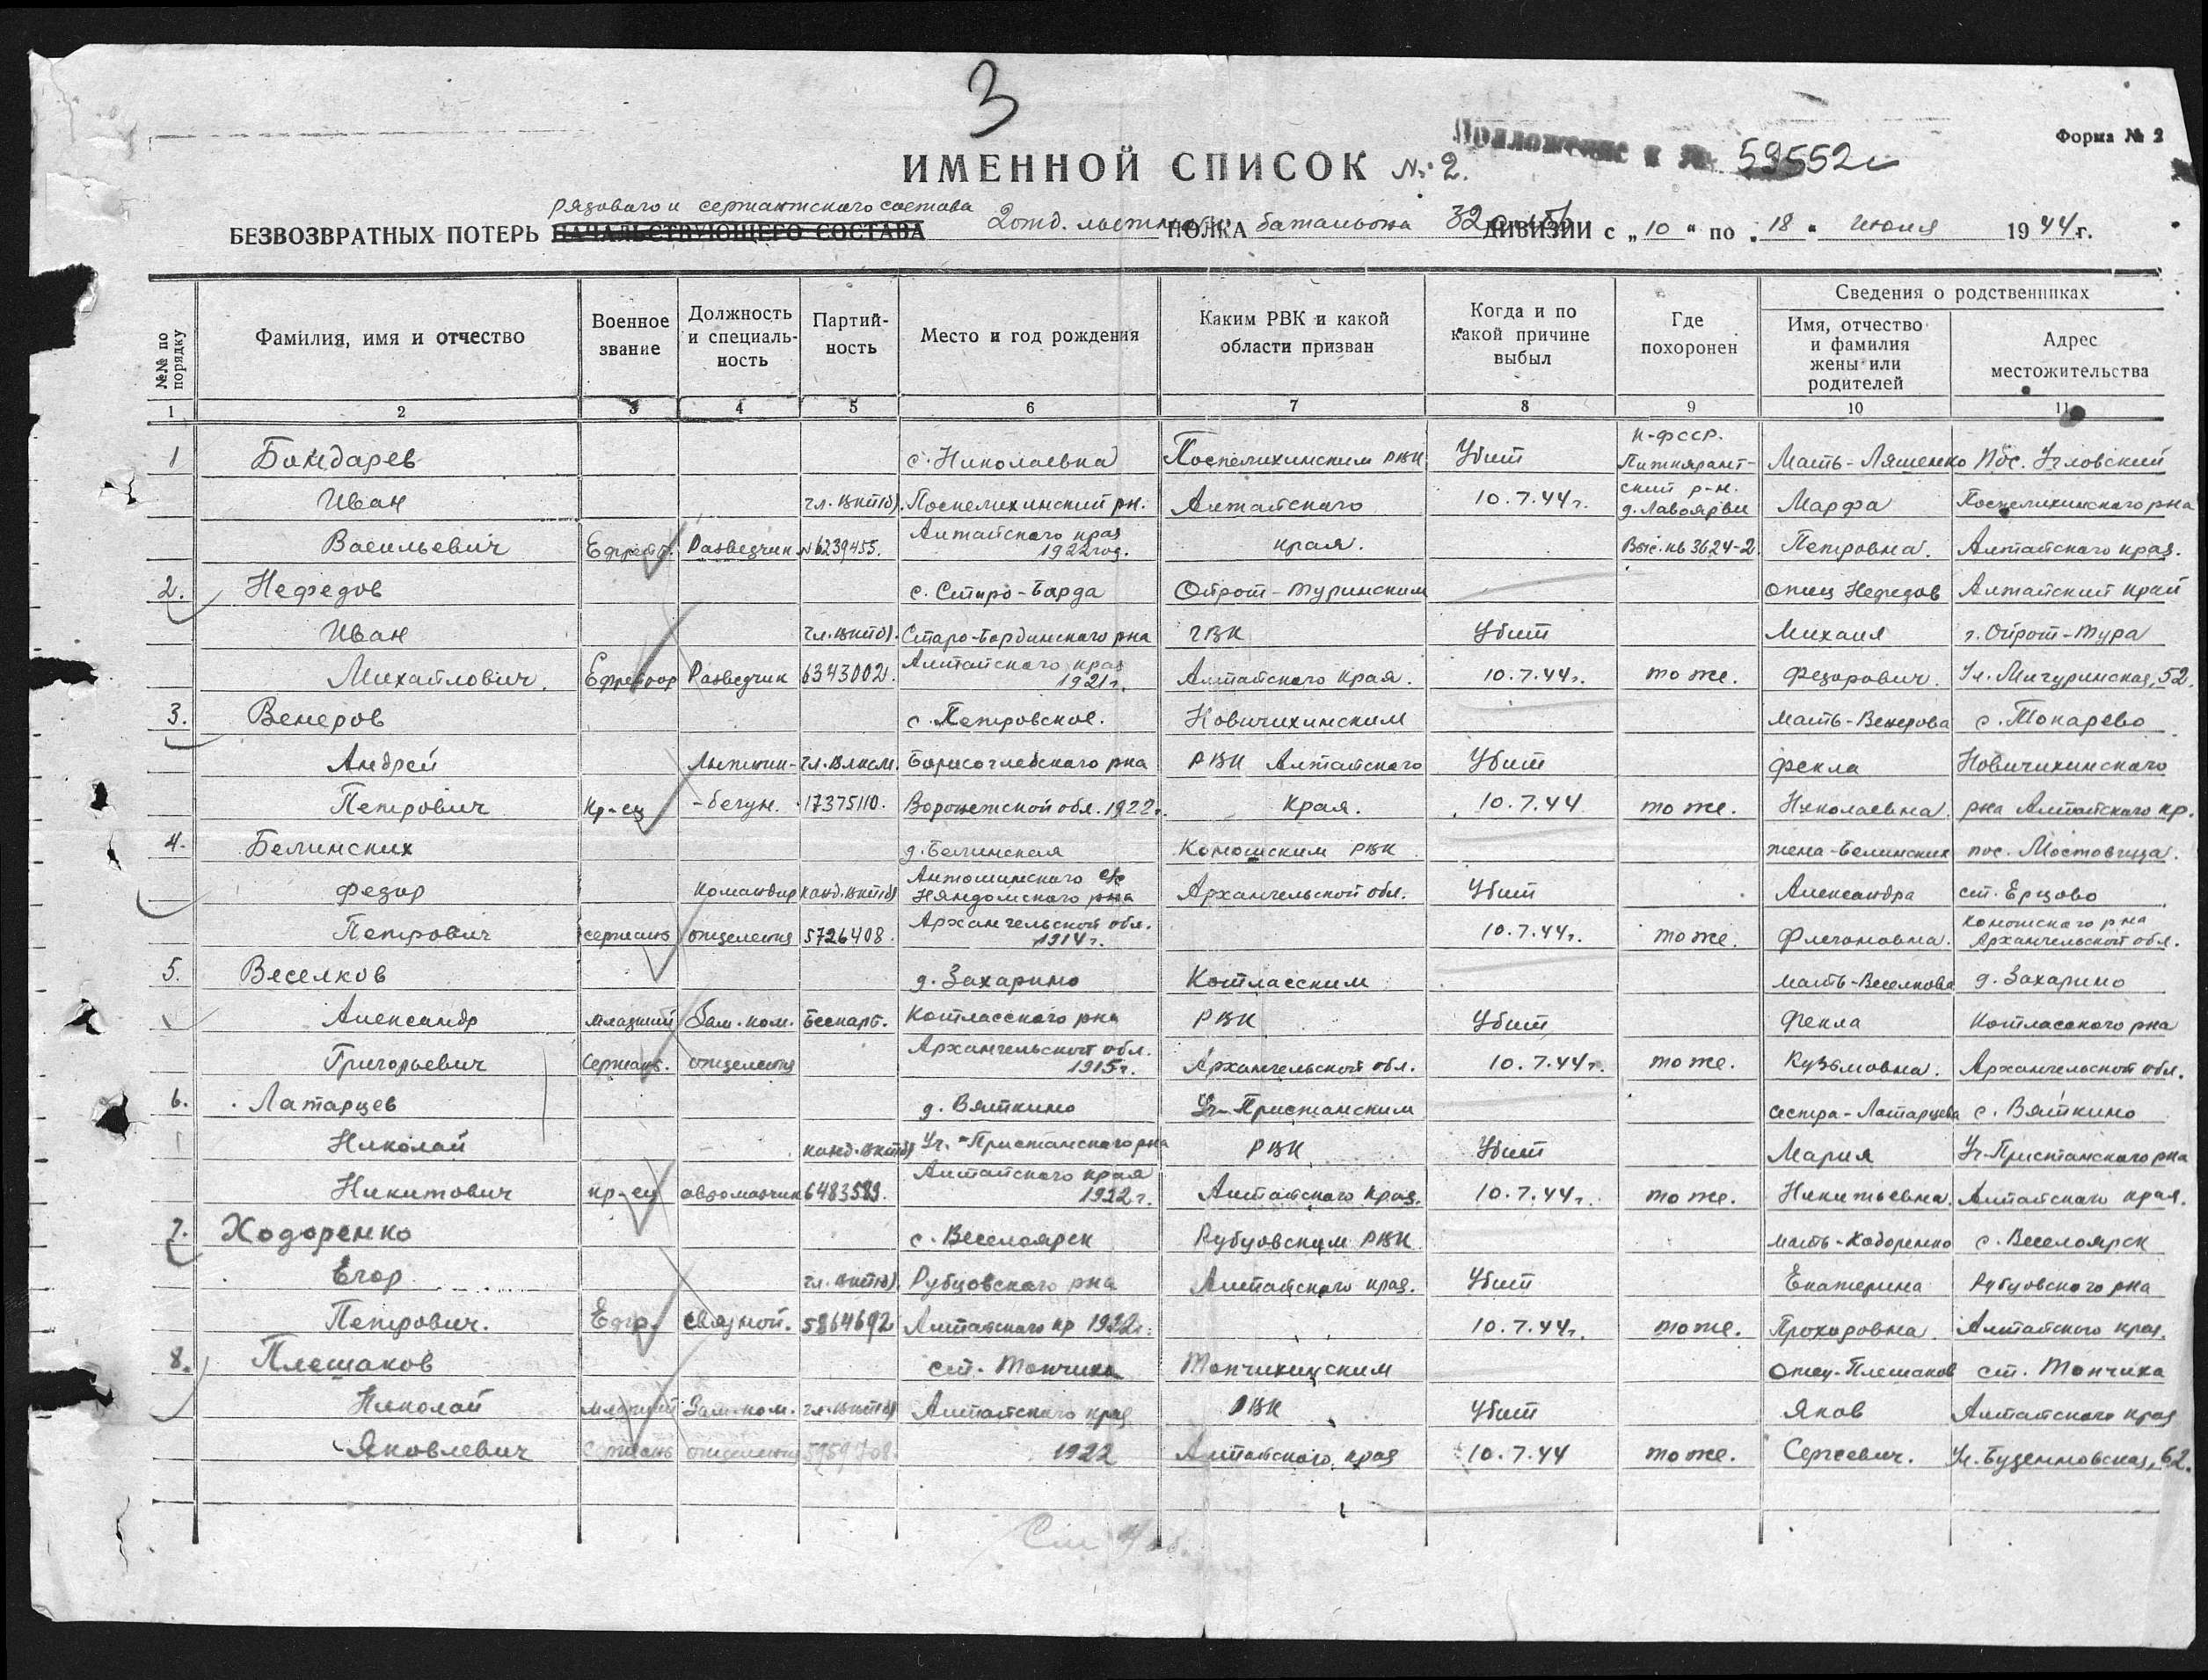 3
Форма № 2
Приложение к № 59552с
ИМЕННОЙ СПИСОК № 2.
рядового и сержантского состава
БЕЗВОЗВРАТНЫХ ПОТЕРЬ НАЧАЛЬСТВУЮЩЕГО СОСТАВА 2 отд. лыжного ПОЛКА батальона 32 ДИВИЗИИ с „10“ по „18“ июля 1944 г.
№№ по порядку
Фамилия, имя и отчество
Военное звание
Должность и специальность
Партийность
Место и год рождения
Каким РВК и какой области призван
Когда и по какой причине выбыл
Где похоронен
Сведения о родственниках
Имя, отчество и фамилия жены или родителей
Адрес местожительства
1 2 3 4 5 6 7 8 9 10 11
К-ФССР.
1 Бондарев с. Николаевка Поспелихинским РВК Убит Питкярант- Мать-Ляшенко Пос. Угловский
Иван чл. ВКП(б). Поспелихинский рн. Алтайского 10.7.44г. ский р-н. д. Лавоярви Марфа Поспелихинского рна
Васильевич Ефрейт. Разведчик №6239455. Алтайского края 1922 год. края. Выс. кв 3624-2 Петровна. Алтайского края.
2. Нефедов с. Старо-Барда Ойрот-Туринским отец Нефедов Алтайский край
Иван чл. ВКП(б). Старо-Бардинского рна ГВК Убит Михаил г. Ойрот-Тура
Михайлович. Ефрейтор Разведчик 6343002. Алтайского края 1921г. Алтайского края. 10.7.44г. тоже. Федорович. Ул. Мичуринская, 52.
3. Венеров с. Петровское. Новичихинским мать-Венерова с. Токарево
Андрей Лыжник- чл. ВЛКСМ. Борисоглебского рна РВК Алтайского Убит Фекла Новичихинского
Петрович Кр-ец -бегун. 17375110. Воронежской обл. 1922г. края. 10.7.44 тоже. Николаевна. рна Алтайского кр.
4. Белинских д. Белинская Коношским РВК жена-Белинских пос. Мостовица.
Федор Командир канд. ВКП(б) Антошинского с/с Няндомского рна Архангельской обл. Убит Александра ст. Ерцово
Петрович сержант отделения 5726408. Архангельской обл. 1914г. 10.7.44г. тоже. Флегоновна. Коношского рна Архангельской обл.
5. Веселков д. Захарино Котласским мать-Веселкова д. Захарино
Александр младший Зам. ком. Беспарт. Котласского рна РВК Убит Фекла Котласского рна
Григорьевич Сержант. отделения Архангельской обл. 1915г. Архангельской обл. 10.7.44г. тоже. Кузьмовна. Архангельской обл.
6. Латарцев д. Вяткино Уч-Пристанским сестра-Латарцева с. Вяткино
Николай канд. ВКП(б) Уч.-Пристанского рна РВК Убит Мария Уч-Пристанского рна
Никитович кр-ец автоматчик 6483589. Алтайского края 1922г. Алтайского края. 10.7.44г. тоже. Никитьевна. Алтайского края.
7. Ходоренко с. Веселоярск Рубцовским РВК мать-Ходоренко с. Веселоярск
Егор чл. ВКП(б) Рубцовского рна Алтайского края. Убит Екатерина Рубцовского рна
Петрович. Ефр. связной. 5864692 Алтайского кр 1922г. 10.7.44г. тоже. Прохоровна. Алтайского края.
8. Плешаков ст. Топчиха Топчихинским Отец-Плешаков ст. Топчиха
Николай младший Зам. ком. чл. ВКП(б) Алтайского края РВК Убит Яков Алтайского края
Яковлевич сержант отделения 5959708. 1922 Алтайского края 10.7.44 тоже. Сергеевич. Ул. Буденновская, 62.